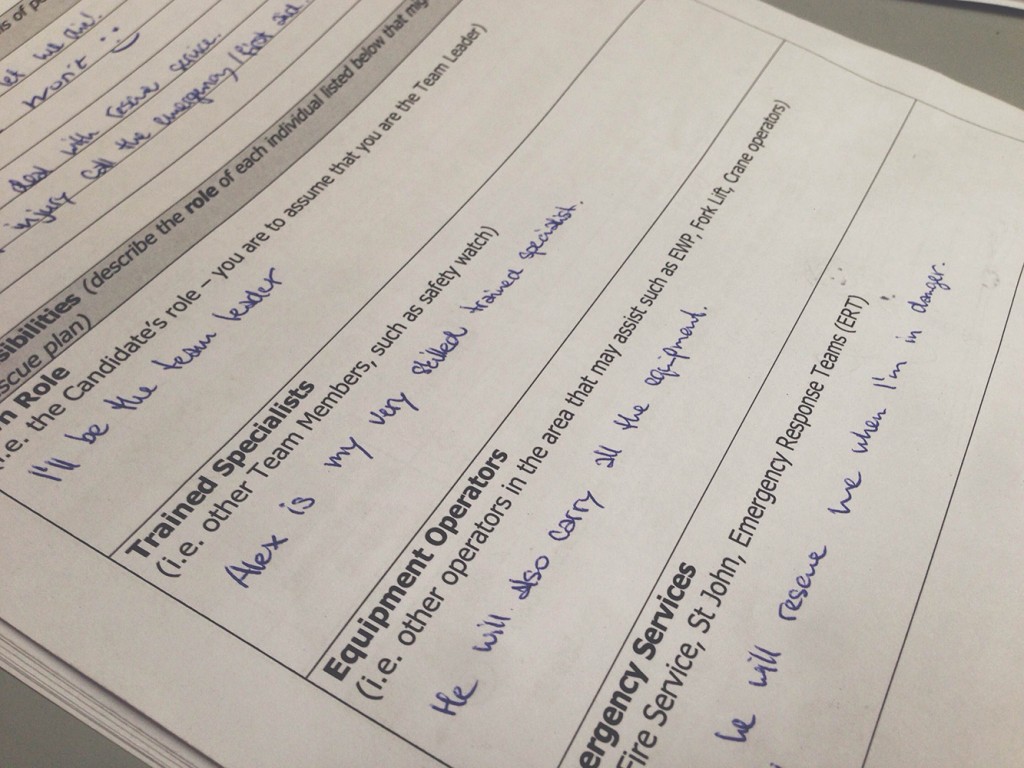 s of pe
let me die.
won't :)
deal with rescue service.
injury call the emergency/first aid.
sibilities (describe the role of each individual listed below that mig
scue plan)
n Role
i.e. the Candidate's role – you are to assume that you are the Team Leader)
I'll be the team leader
Trained Specialists
(i.e. other Team Members, such as safety watch)
Alex is my very skilled trained specialist.
Equipment Operators
(i.e. other operators in the area that may assist such as EWP, Fork Lift, Crane operators)
He will also carry all the equipment.
ergency Services
Fire Service, St John, Emergency Response Teams (ERT)
he will rescue me when I'm in danger.